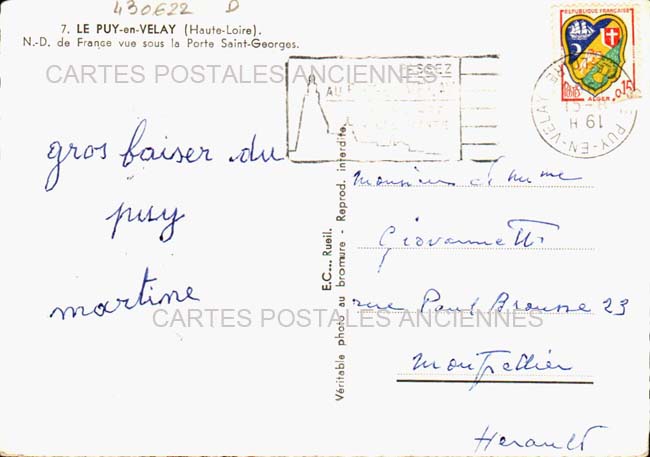 430622 D
7. LE PUY-en-VELAY (Haute-Loire).
N.-D. de France vue sous la Porte Saint-Georges.
CARTES POSTALES ANCIENNES
REPUBLIQUE FRANÇAISE
0,15
ALGER
PUY-EN-VELAY
19 H
AU
gros baiser du
puy
martine
E.C... Rueil.
Véritable photo au bromure - Reprod. interdite.
monsieur et mme
Giovannetti
rue Paul Brousse 23
montpellier
Herault
CARTES POSTALES ANCIENNES